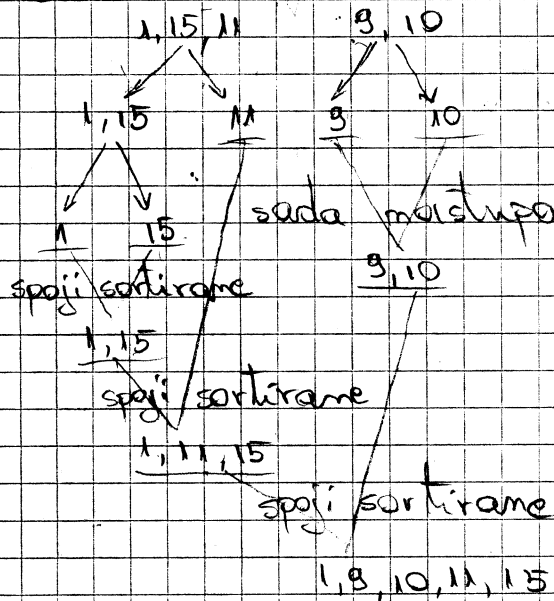 1, 15, 11 9, 10
1, 15 11 9 10
1 15 sada nastupa
9, 10
spoji sortirane
1, 15
spoji sortirane
1, 11, 15
spoji sortirane
1, 9, 10, 11, 15